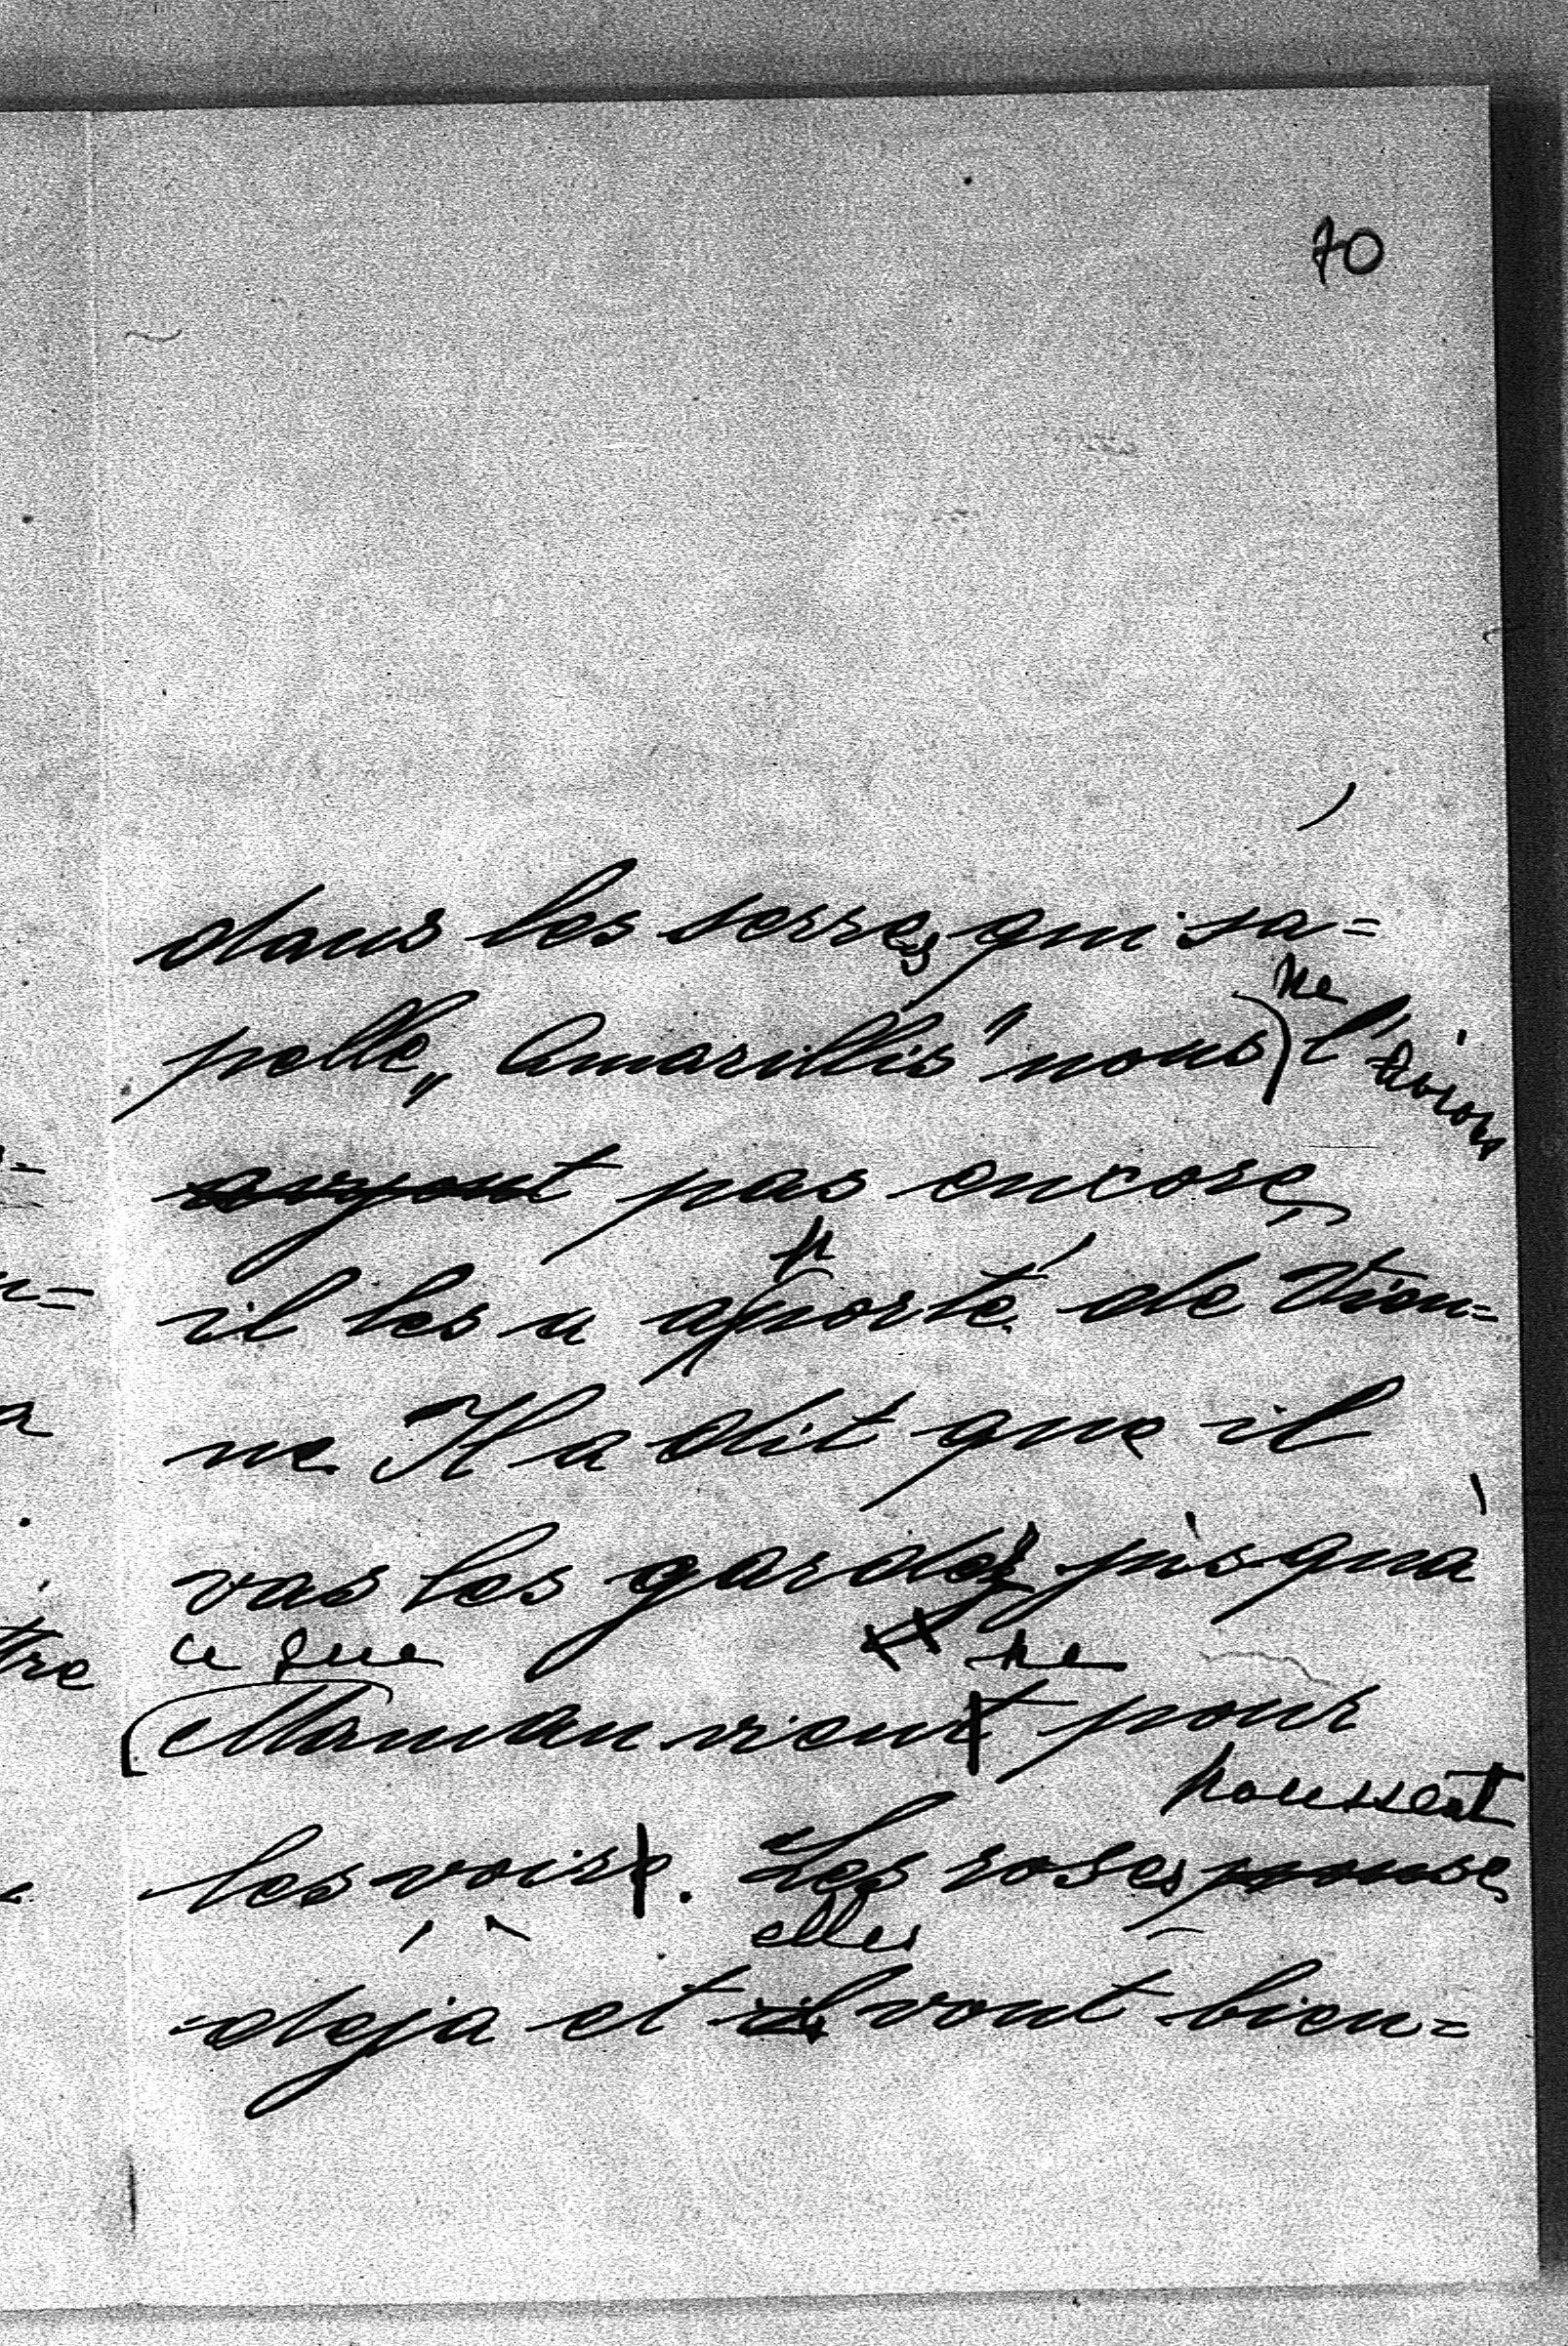 70
dans les serres qui sa=
ne
pelle „Amarillis" nous l'avions
pas encore,
p
il les a aporté de Vien=
ne Il a dit que il
vas les garder jusqua
ce que ne
Maman vient pour
poussent
les voire. Les roses pousse
elles
deja et ils vont bien=